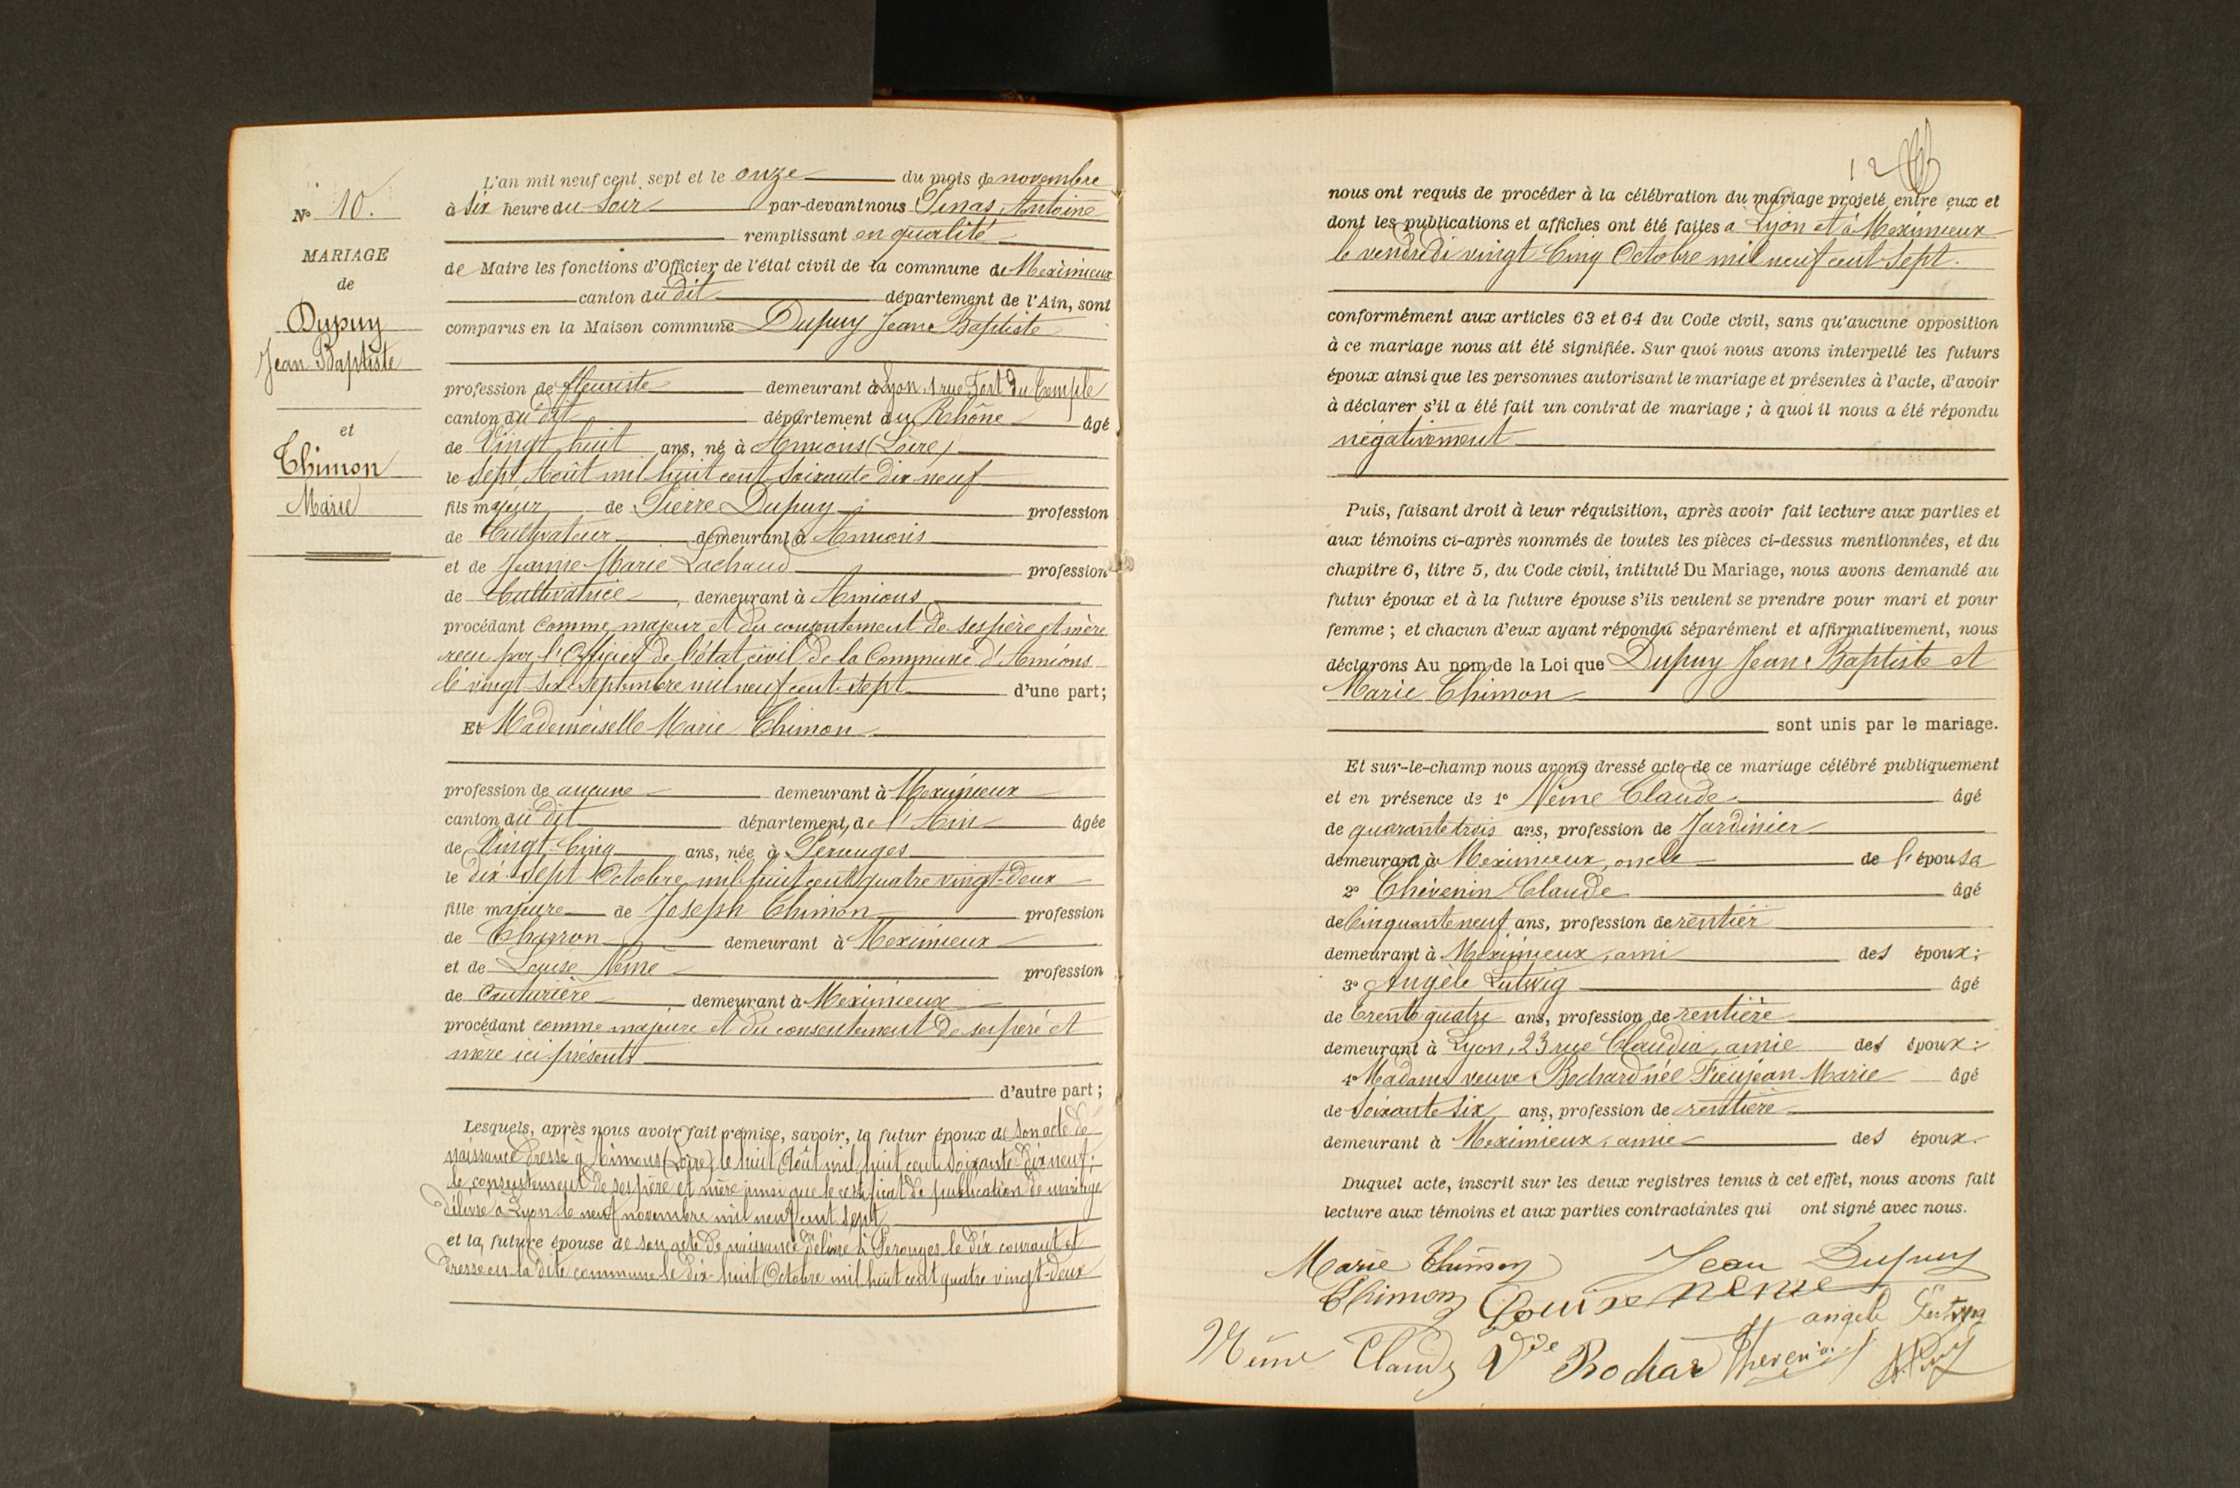 N° 10.
MARIAGE
de
Dupuy
Jean Baptiste
et
Thimon
Marie
L'an mil neuf cent sept et le onze du mois de novembre
à six heure du Soir par-devant nous Pinas, Antoine
remplissant en qualité
de Maire les fonctions d'Officier de l'état civil de la commune de Meximieux
canton du dit département de l'Ain, sont
comparus en la Maison commune Dupuy Jean Baptiste
profession de fleuriste demeurant à Lyon, 1 rue Port du Temple
canton du dit département du Rhône âgé
de Vingt huit ans, né à Amions (Loire)
le Sept Août mil huit cent soixante dix neuf
fils majeur de Pierre Dupuy profession
de Cultivateur demeurant à Amions
et de Jeanne Marie Lachaud profession
de Cultivatrice, demeurant à Amions
procédant comme majeur et du consentement de ses père et mère
reçu par l'Officier de l'état civil de la Commune d'Amions
le vingt six septembre mil neuf cent sept d'une part;
Et Mademoiselle Marie Thimon
profession de aucune demeurant à Meximieux
canton du dit département de l'Ain âgée
de Vingt-Cinq ans, née à Perouges
le dix-sept Octobre mil huit cent quatre vingt-deux
fille majeure de Joseph Thimon profession
de Charron demeurant à Meximieux
et de Louise Nême profession
de Couturière demeurant à Meximieux
procédant comme majeure et du consentement de ses père et
mère ici présents
d'autre part;
Lesquels, après nous avoir fait remise, savoir, le futur époux de son acte de
naissance dressé à Amions (Loire) le huit Août mil huit cent soixante dix neuf;
le consentement de ses père et mère ainsi que le certificat de publication de mariage
délivré à Lyon le neuf novembre mil neuf cent sept
et la future épouse de son acte de naissance délivré à Perouges le dix courant et
dressé en la dite commune le dix-huit Octobre mil huit cent quatre vingt-deux
12
nous ont requis de procéder à la célébration du mariage projeté entre eux et
dont les publications et affiches ont été faites à Lyon et à Meximieux
le vendredi vingt Cinq Octobre mil neuf cent sept.
conformément aux articles 63 et 64 du Code civil, sans qu'aucune opposition
à ce mariage nous ait été signifiée. Sur quoi nous avons interpellé les futurs
époux ainsi que les personnes autorisant le mariage et présentes à l'acte, d'avoir
à déclarer s'il a été fait un contrat de mariage; à quoi il nous a été répondu
négativement
Puis, faisant droit à leur réquisition, après avoir fait lecture aux parties et
aux témoins ci-après nommés de toutes les pièces ci-dessus mentionnées, et du
chapitre 6, titre 5, du Code civil, intitulé Du Mariage, nous avons demandé au
futur époux et à la future épouse s'ils veulent se prendre pour mari et pour
femme; et chacun d'eux ayant répondu séparément et affirmativement, nous
déclarons Au nom de la Loi que Dupuy Jean Baptiste et
Marie Thimon
sont unis par le mariage.
Et sur-le-champ nous avons dressé acte de ce mariage célébré publiquement
et en présence de 1° Nême Claude âgé
de quarante trois ans, profession de Jardinier
demeurant à Meximieux, oncle de l'épouse
2° Thévenin Claude âgé
de Cinquante neuf ans, profession de rentier
demeurant à Meximieux, ami des époux;
3° Angèle Lutwig âgé
de trente quatre ans, profession de rentière
demeurant à Lyon, 23 rue Claudia, amie des époux;
4° Madame veuve Rochard née Fieujean Marie âgé
de Soixante six ans, profession de rentière
demeurant à Meximieux, amie des époux.
Duquel acte, inscrit sur les deux registres tenus à cet effet, nous avons fait
lecture aux témoins et aux parties contractantes qui ont signé avec nous.
Marie Thimon Jean Dupuy
Thimon Louise neme
angele Lutwig
Nême Claude Vve Rochar Thevenin